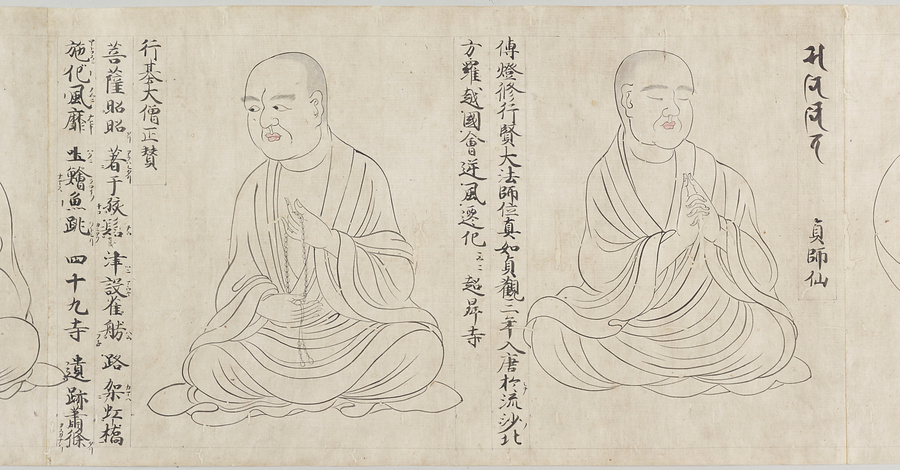 貞師仙
傳燈修行賢大法師位真如貞觀三年入唐於流沙北
方羅越國會逆風遷化云云 超昇寺
行基大僧正賛
菩薩昭昭 著于狡髫 津設雀舫 路架虹橋
施化風靡 吐鱠魚跳 四十九寺 遺跡蕭條